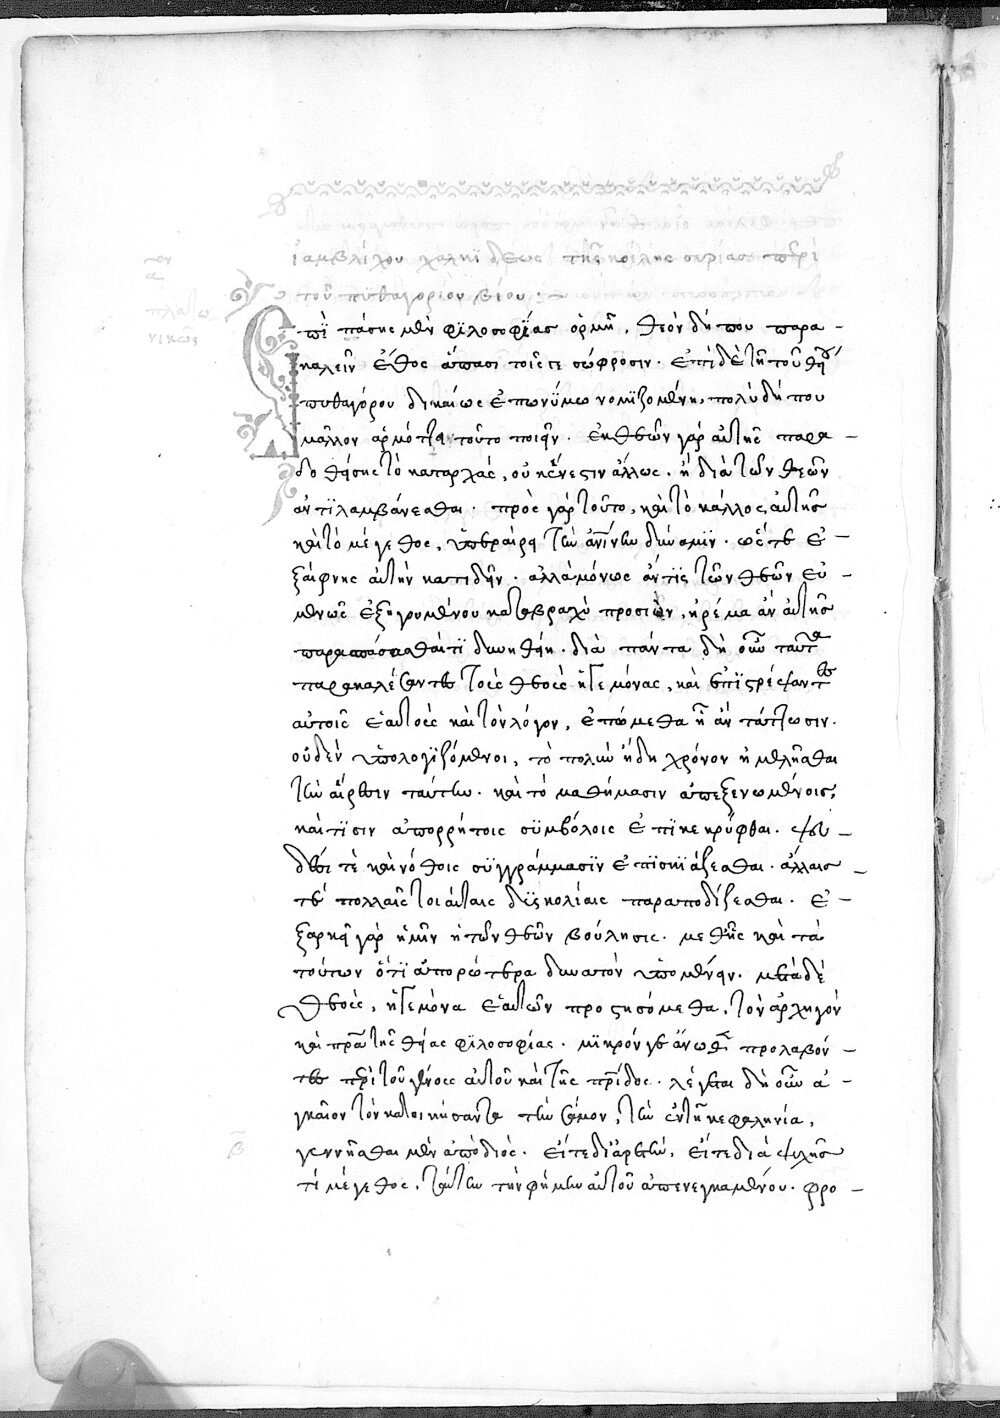 ἰαμβλίχου χαλκιδέως τῆς κοίλης συρίας περὶ
τοῦ πυθαγορίου βίου :~
Ἐπὶ πάσης μὲν φιλοσοφίας ὁρμῆ, θεὸν δή που παρα-
καλεῖν ἔθος ἅπασι τοῖς γε σώφροσιν. ἐπὶ δὲ τῇ τοῦ θείου
πυθαγόρου δικαίως ἐπωνύμω νομιζομένη, πολὺ δή που
μᾶλλον ἁρμόττει τοῦτο ποιεῖν. ἐκ θεῶν γὰρ αὐτῆς παρα-
δοθείσης τὸ καταρχάς, οὐκ ἔνεστιν ἄλλως, ἢ διὰ τῶν θεῶν
ἀντιλαμβάνεσθαι. πρὸς γὰρ τοῦτο, καὶ τὸ κάλλος αὐτῆς
καὶ τὸ μέγεθος, ὑπεραίρει τὴν ἀνίνην δύναμιν. ὥστε ἐ-
ξαίφνης αὐτὴν κατιδεῖν. ἀλλὰ μόνως ἄν τις τῶν θεῶν εὐ-
μενῶς ἐξηγουμένου καταβραχὺ προσιὼν, ἠρέμα ἂν αὐτῆς
παρασπάσασθαί τι δυνηθείη. διὰ πάντα δὴ οὖν ταῦτα
παρακαλέσαντες τοὺς θεοὺς ἡγεμόνας, καὶ ἐπιτρέψαντες
αὐτοῖς ἑαυτοὺς καὶ τὸν λόγον, ἑπώμεθα ᾗ ἂν ἄγωσιν.
οὐδὲν ὑπολογιζόμενοι, τὸ πολὺν ἤδη χρόνον ἠμελῆσθαι
τὴν αἵρεσιν ταύτην. καὶ τὸ μαθήμασιν ἀπεξενωμένοις,
καὶ τισιν ἀπορρήτοις συμβόλοις ἐπικεκρύφθαι. ψευ-
δέσι τὲ καὶ νόθοις συγγράμμασιν ἐπισκιάζεσθαι. ἄλλαις
τὲ πολλαῖς τοιαύταις δυσκολίαις παραποδίζεσθαι. ἐ-
ξαρκεῖ γὰρ ἡμῖν ἡ τῶν θεῶν βούλησις. μεθ' ἧς καὶ τὰ
τούτων ἔτι ἀπορώτερα δυνατὸν ὑπομένειν. μετὰ δὲ
θεοὺς, ἡγεμόνα ἑαυτῶν προστησόμεθα, τὸν ἀρχηγὸν
καὶ πρα τῆς θείας φιλοσοφίας. μικρόν γε ἄνωθεν προλαβόν-
τες περὶ τοῦ γένους αὐτοῦ καὶ τῆς πρίδος. λέγεται δὴ οὖν ἀ-
γκαῖον τὸν κατοικήσαντα τὴν σάμον, τὴν ἐν τῇ κεφαληνία,
γεννῆσθαι μὲν ἀπὸ διός. εἴτε δι' ἀρετὴν, εἴτε διὰ ψυχῆς
τι μέγεθος, ταύτην τὴν φήμην αὐτοῦ ἀπενεγκαμένου. φρο-